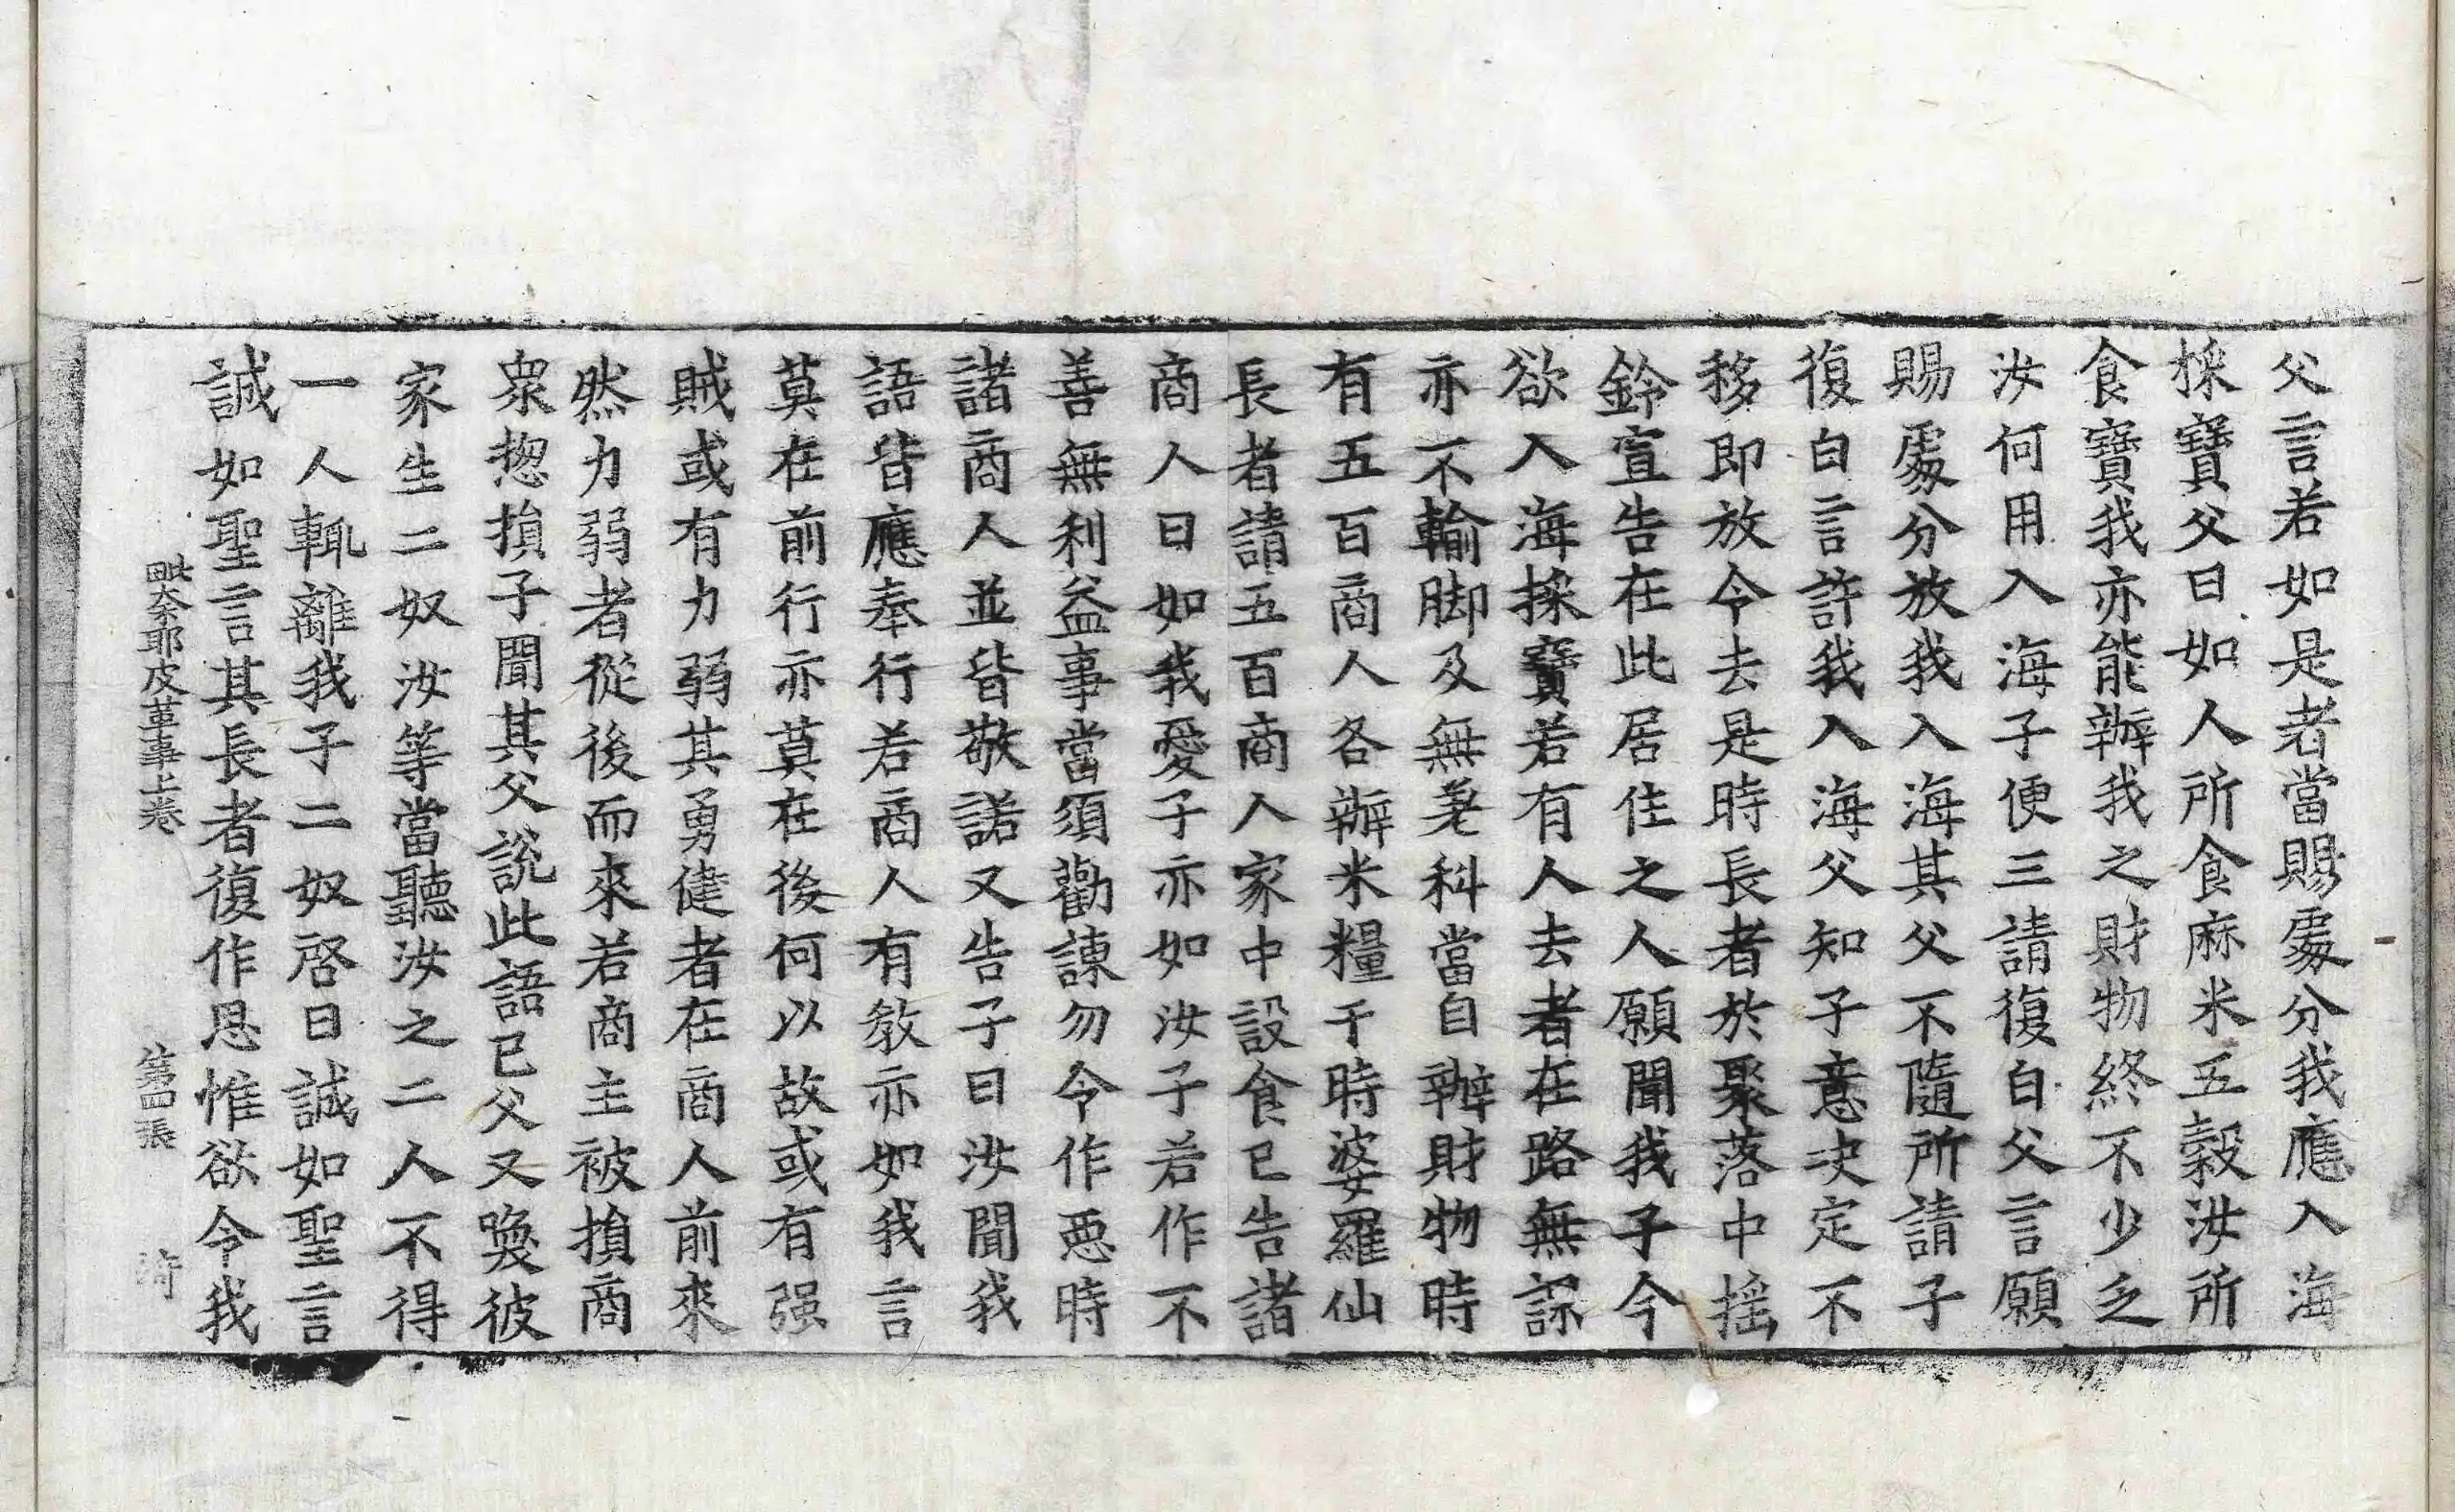 父言若如是者當賜處分我應入海
採寶父曰如人所食麻米五穀汝所
食寶我亦能辦我之財物終不少乏
汝何用入海子便三請復白父言願
賜處分放我入海其父不隨所請子
復白言許我入海父知子意决定不
移即放令去是時長者於聚落中搖
鈴宣告在此居住之人願聞我子今
欲入海採寶若有人去者在路無
亦不輸脚及無差科當自辦財物時
有五百商人各辦米糧于時婆羅仙
長者請五百商人家中設食已告諸
商人曰如我愛子亦如汝子若作不
善無利益事當須勸諫勿令作惡時
諸商人並皆敬諾又告子曰汝聞我
語皆應奉行若商人有教亦如我言
莫在前行亦莫在後何以故或有强
賊或有力弱其勇健者在商人前來
然力弱者從後而來若商主被損商
衆揔損子聞其父說此語已父又喚彼
家生二奴汝等當聽汝之二人不得
一人輒離我子二奴啓曰誠如聖言
誠如聖言其長者復作思惟欲令我
毗奈耶皮革事上卷 第四張